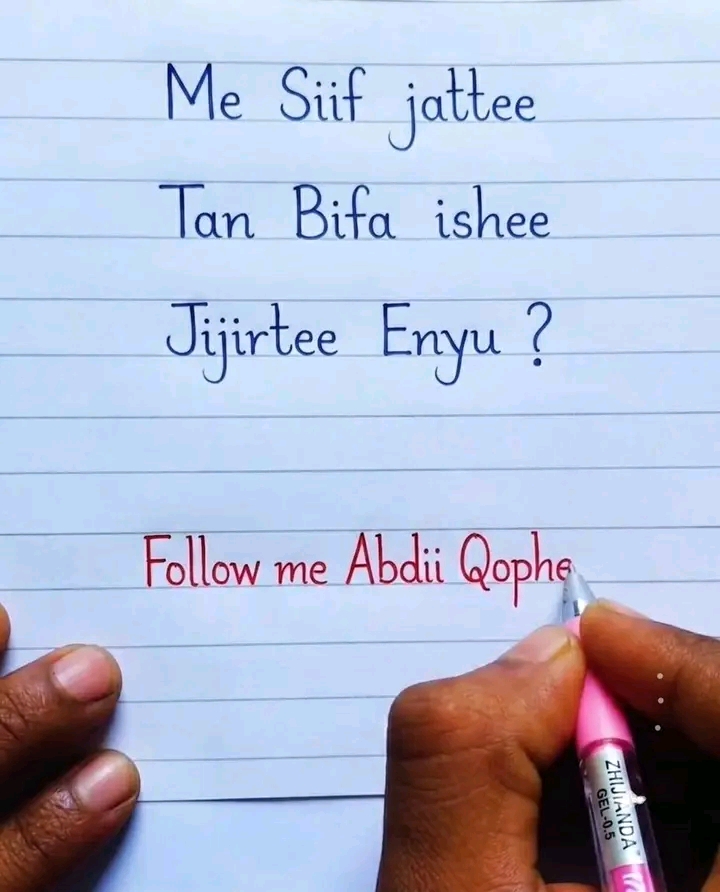 Me Siif jattee
Tan Bifa ishee
Jijirtee Enyu ?
Follow me Abdii Qophe
ZHIJIANDA
GEL-0.5